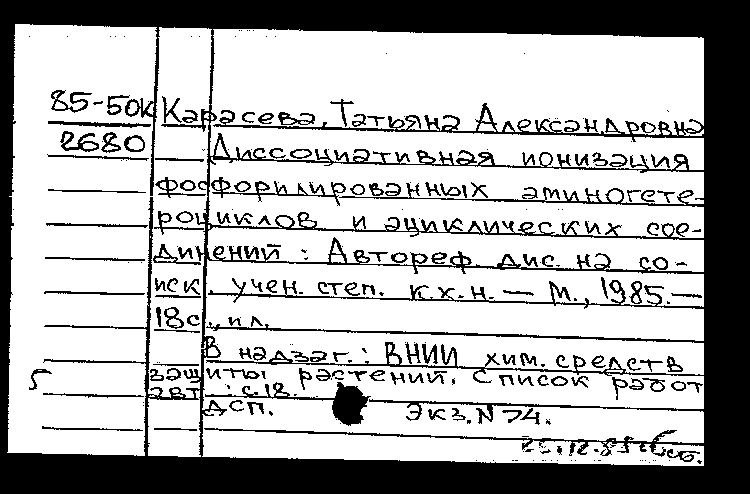 85-50к Карасева, Татьяна Александровна
2680 Диссоциативная ионизация
фосфорилированных аминогете-
роциклов и ациклических сое-
динений : Автореф. дис. на со-
иск. учен. степ. к.х.н. — М., 1985.—
18с., ил.
В надзаг.: ВНИИ хим. средств
5 защиты растений. Список работ
авт.: с.18.
ДСП. Экз. N 74.
25.12.85